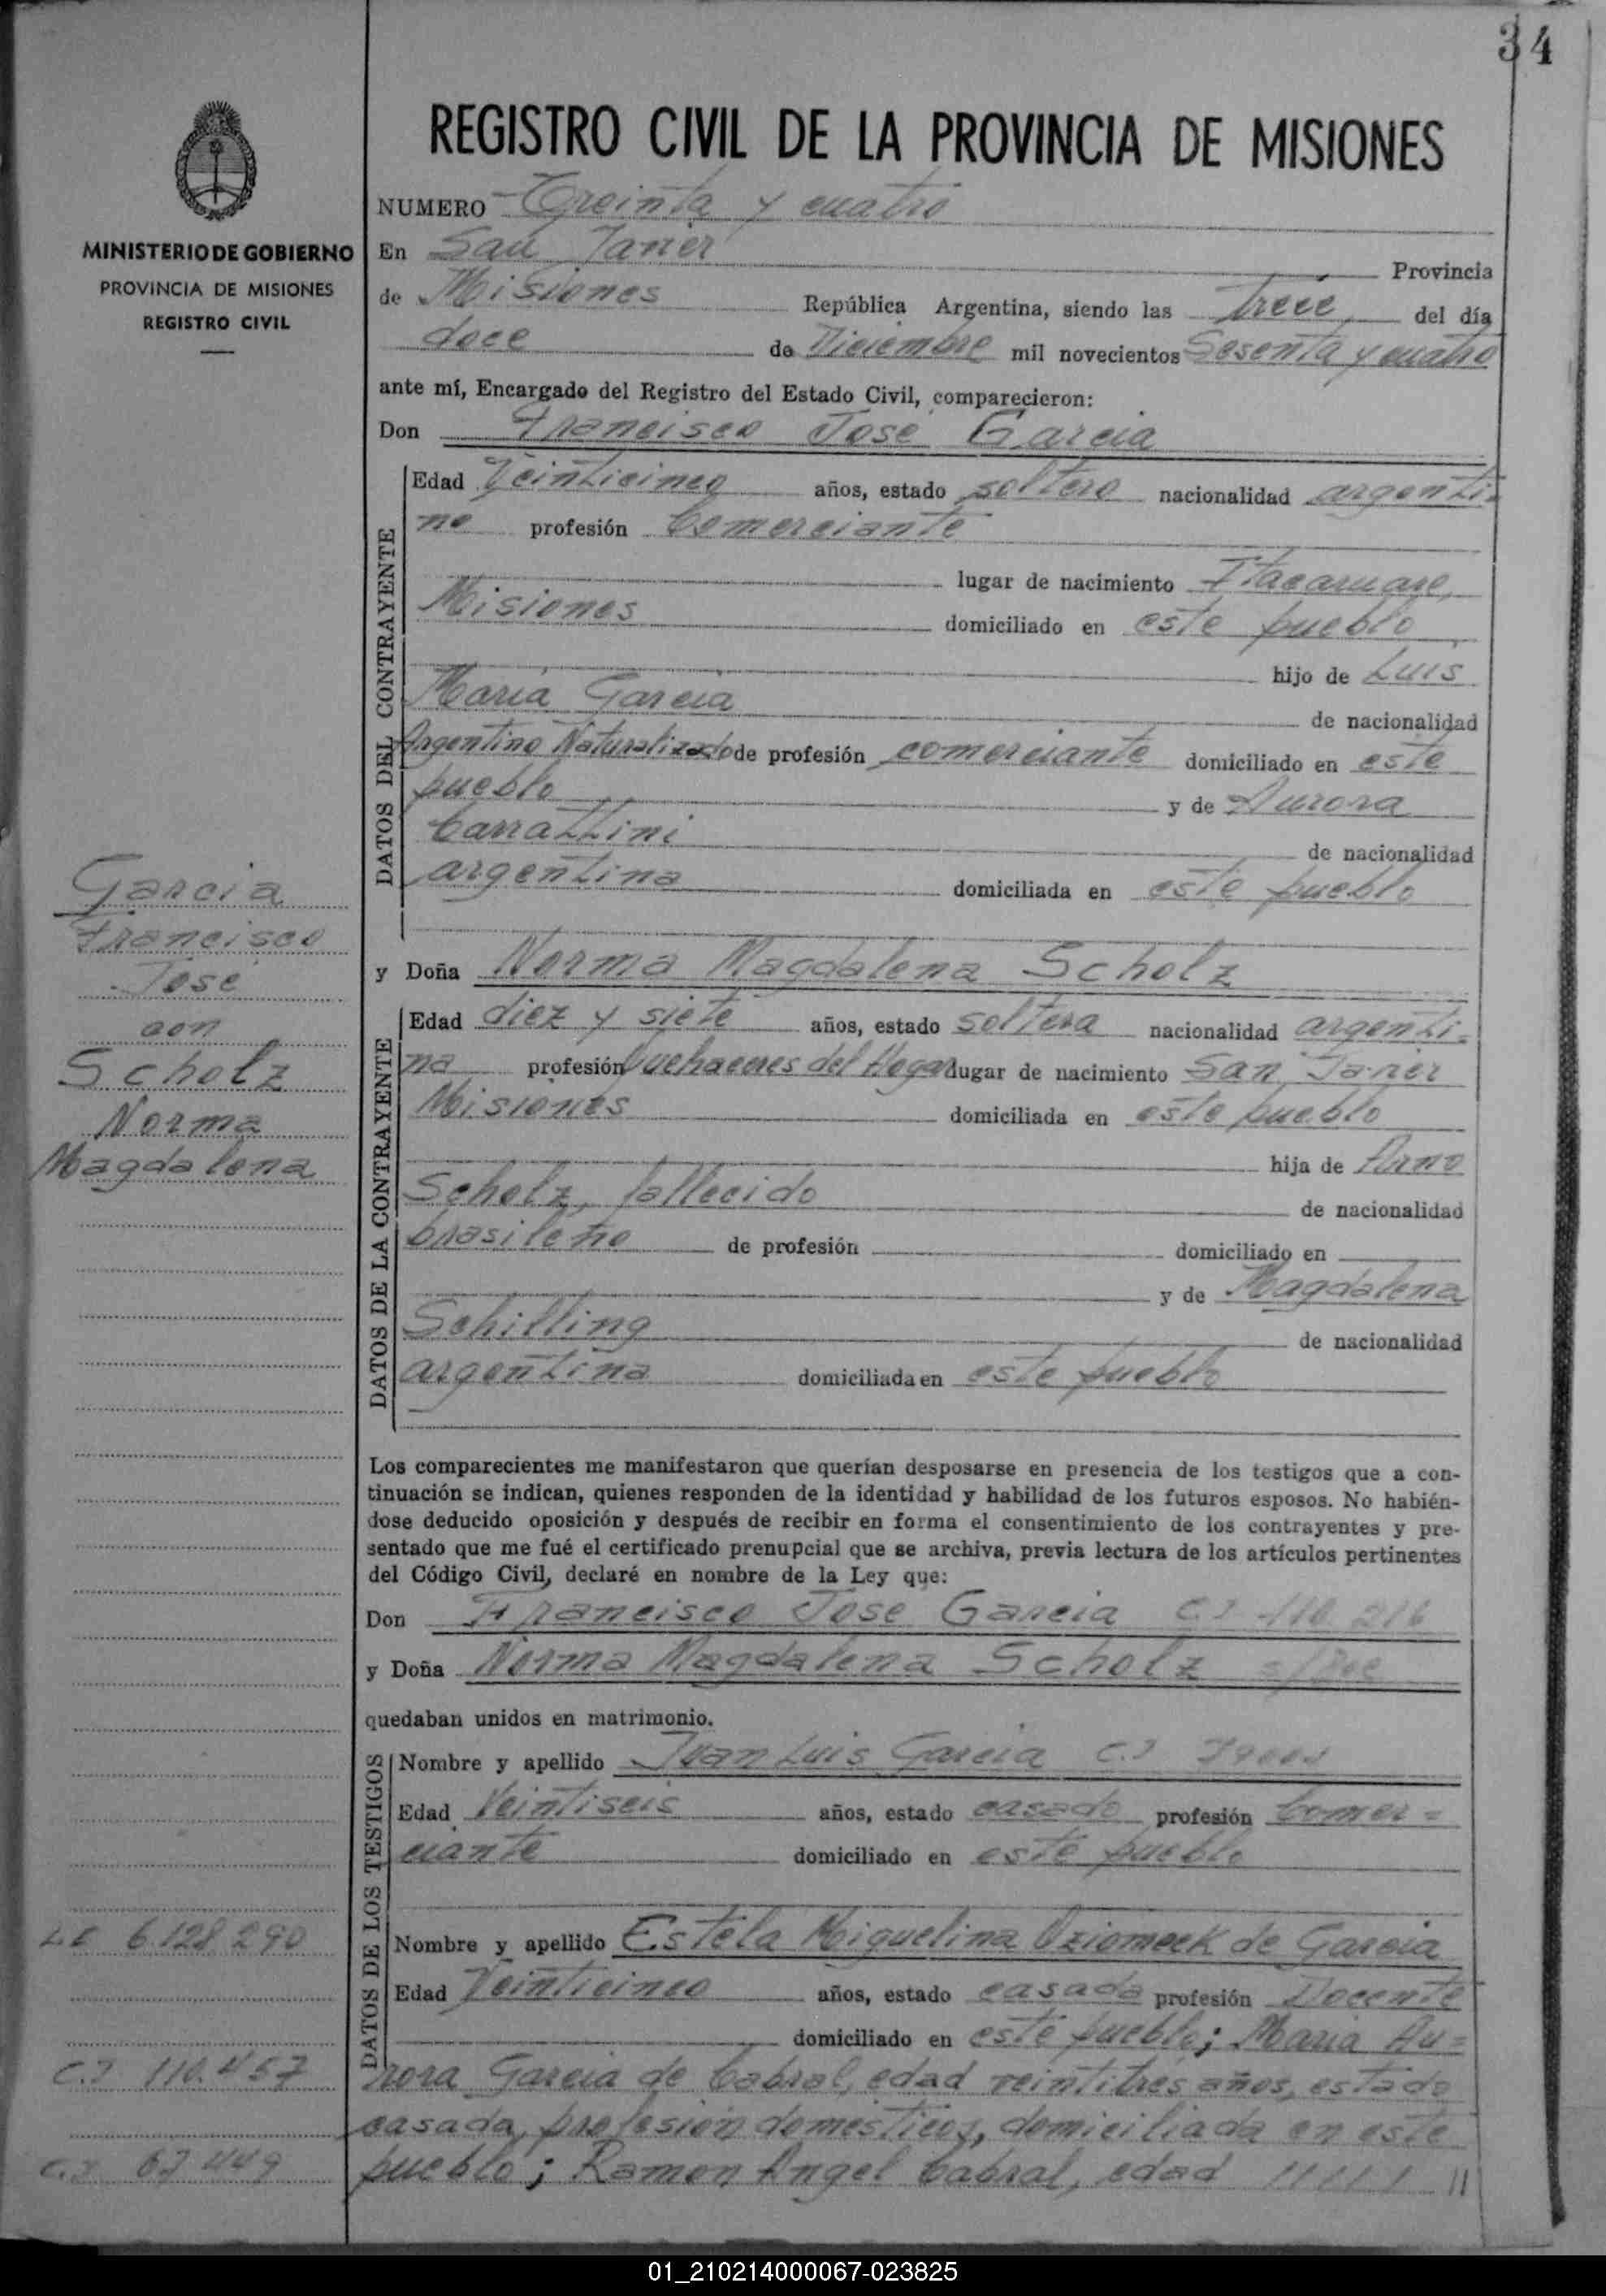 34
REGISTRO CIVIL DE LA PROVINCIA DE MISIONES
MINISTERIO DE GOBIERNO
PROVINCIA DE MISIONES
REGISTRO CIVIL
NUMERO Treinta y cuatro
En San Javier Provincia
de Misiones República Argentina, siendo las trece, del día
doce de Diciembre mil novecientos Sesenta y cuatro
ante mí, Encargado del Registro del Estado Civil, comparecieron:
Don Francisco José Garcia
DATOS DEL CONTRAYENTE
Edad Veinticinco años, estado soltero nacionalidad argenti-
no profesión Comerciante
lugar de nacimiento Itacaruare,
Misiones domiciliado en este pueblo
hijo de Luis
Maria Garcia de nacionalidad
Argentino Naturalizado de profesión comerciante domiciliado en este
pueblo y de Aurora
Carrattini de nacionalidad
argentina domiciliada en este pueblo
Garcia
Francisco
José
con
Scholz
Norma
Magdalena
y Doña Norma Magdalena Scholz
DATOS DE LA CONTRAYENTE
Edad diez y siete años, estado soltera nacionalidad argenti-
na profesión Quehaceres del Hogar lugar de nacimiento San Javier
Misiones domiciliada en este pueblo
hija de Arno
Scholz, fallecido de nacionalidad
brasileño de profesión domiciliado en
y de Magdalena
Schilling de nacionalidad
argentina domiciliada en este pueblo
Los comparecientes me manifestaron que querían desposarse en presencia de los testigos que a con-
tinuación se indican, quienes responden de la identidad y habilidad de los futuros esposos. No habién-
dose deducido oposición y después de recibir en forma el consentimiento de los contrayentes y pre-
sentado que me fué el certificado prenupcial que se archiva, previa lectura de los artículos pertinentes
del Código Civil, declaré en nombre de la Ley que:
Don Francisco José Garcia C.I 110.216
y Doña Norma Magdalena Scholz
quedaban unidos en matrimonio.
DATOS DE LOS TESTIGOS
Nombre y apellido Juan Luis Garcia C.I
Edad Veintiseis años, estado casado profesión Comer=
ciante domiciliado en este pueblo
LE 6.128.290
Nombre y apellido Estela Miguelina Oziomeck de Garcia
Edad Veinticinco años, estado casada profesión Docente
domiciliado en este pueblo; Maria Au=
C.I 110.457
rora Garcia de Cabral, edad veintitres años, estado
casada, profesión domesticos, domiciliada en este
C.I 67.449
pueblo; Ramon Angel Cabral, edad
01_210214000067-023825